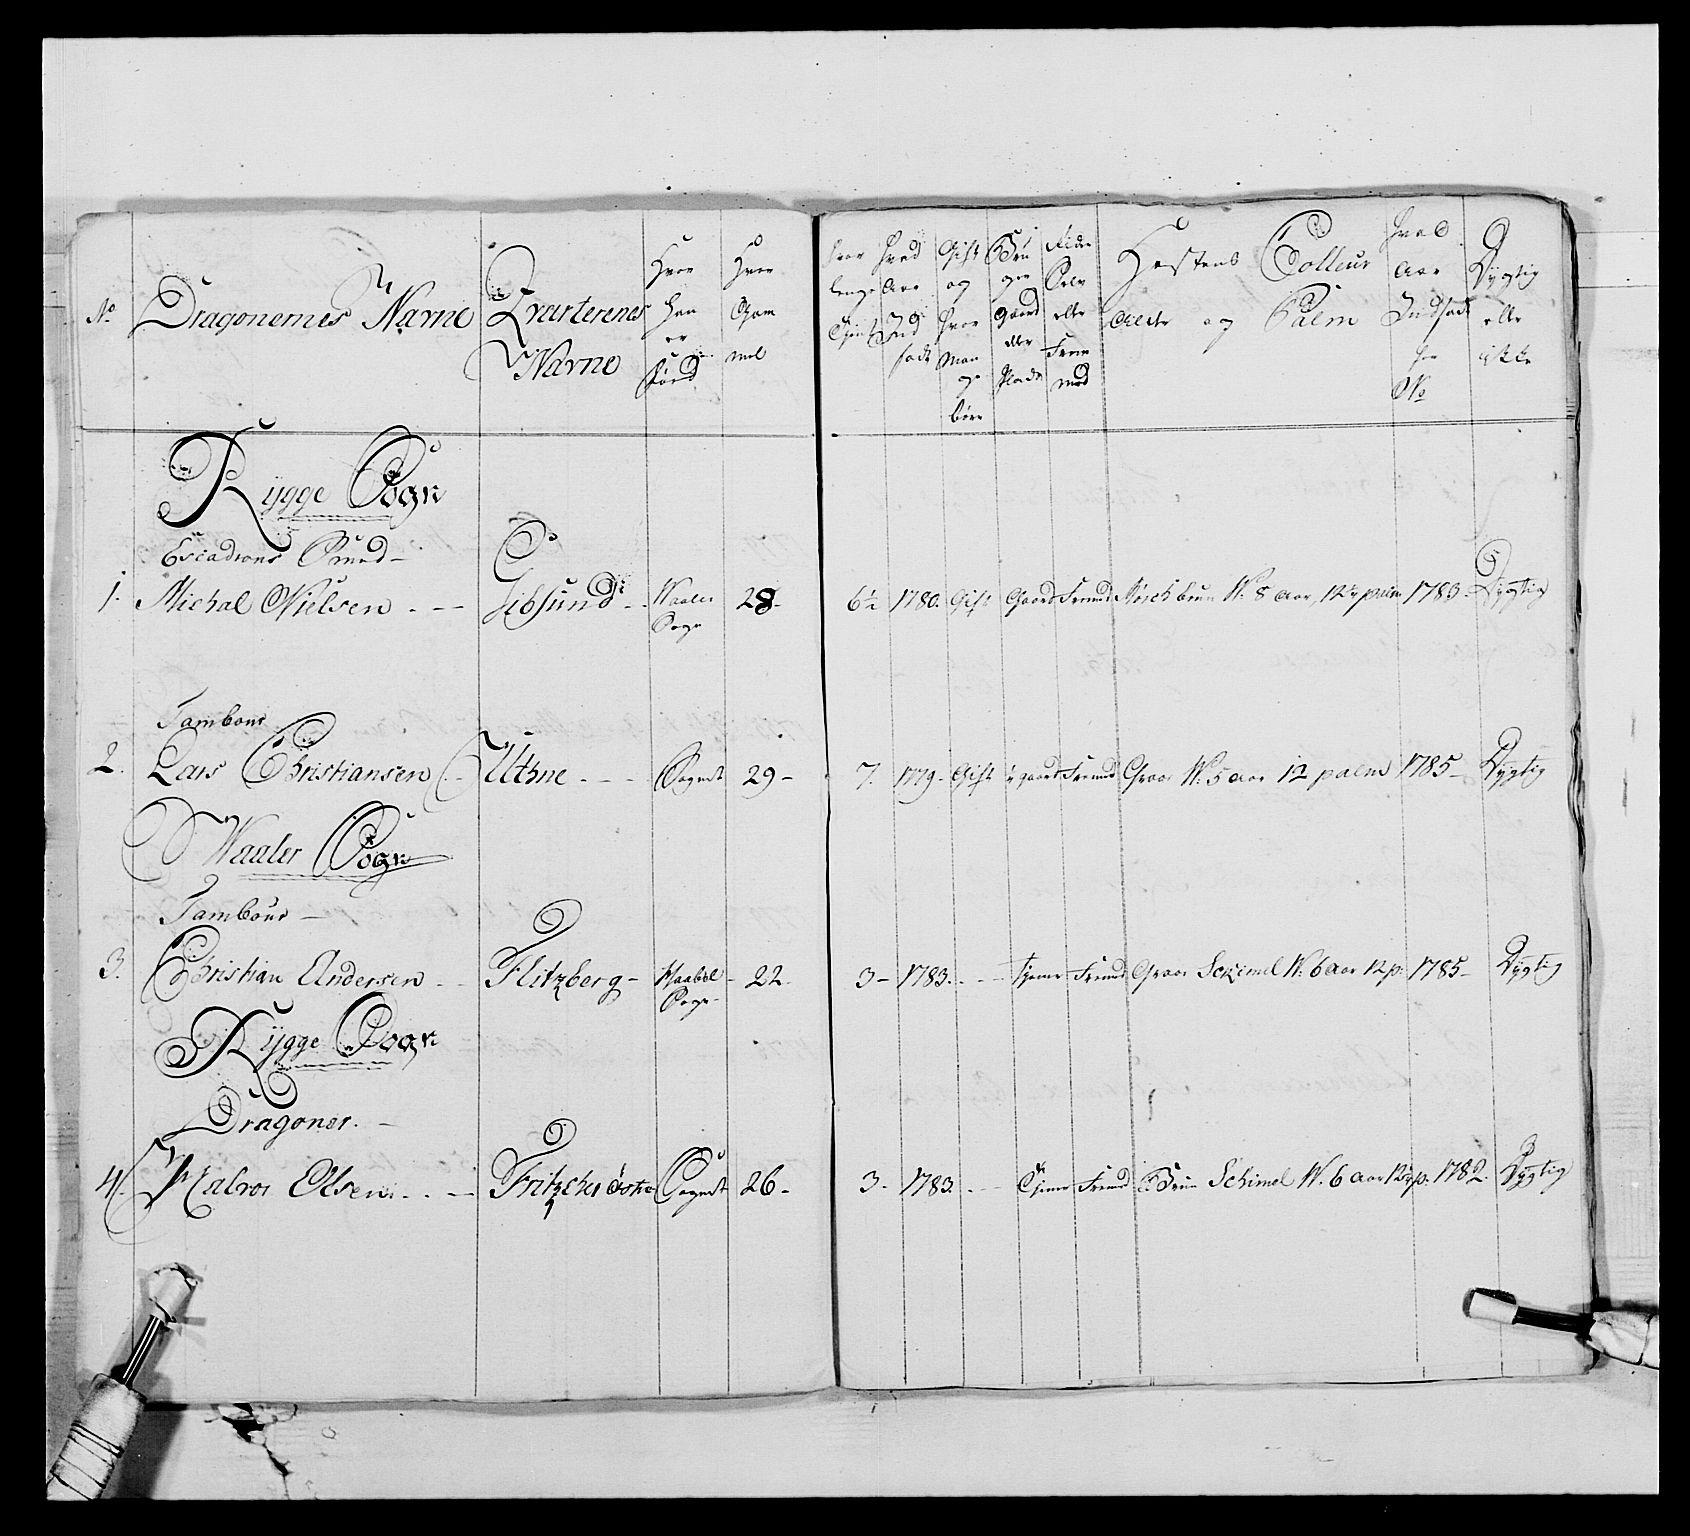 No
Dragonernes Navne
Qvarterenes Navne
Hvor han er Fød
Hvor Gam mel
hvor lenge Tient
hvad Aar Ind sadt
Gift og hvor Man ge børn
Bru ger Gaard eller Plads
Ride Selv eller Frem med
Hestens Colleur Alder og Palm
hvad Aar Indsadt
No
Dygtig eller ikke
Rygge Sogn
Escadrons Smed -
1. Michal Nielsen - - - Waaler Sogn 28 - 6½ 1780. Gift Gaard Fremd brun W. 8 Aar, 12½ palm 1783. Dygtig
Tambour
2. Lars Christiansen - Uthne - - - Sognet 29 - 7. 1779 - Gift ½ gaard Fremd Graae W. 5 aar 12 palm 1785 - Dygtig
Waaler Sogn
Tambour -
3. Christian Andersen - - Flitzberg - Haabøl Sogn - 22 - 3 - 1783. - - - tjener Fremd Graae Schimel W. 6 Aar 12 p. 1785 - Dygtig
Rygge Sogn
Dragoner. -
4. Halvor Olsen - - - Sognet 26 - 3 - 1783. - - Tjener Fremd Brun Schimel W. 6 Aar 12½ p. 1782. Dygtig